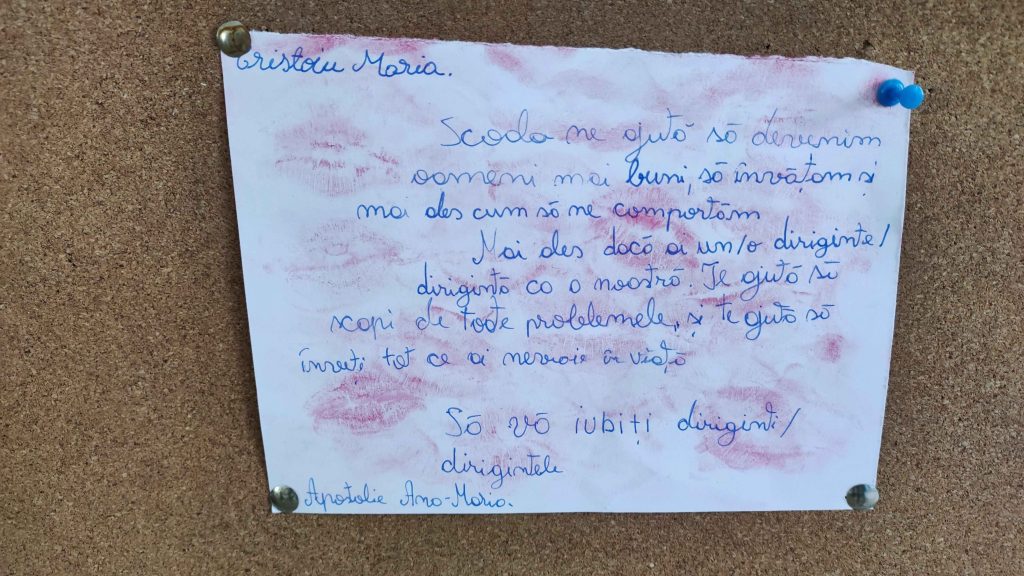 Cristoiu Maria.
Scoala ne ajută să devenim
oameni mai buni, să învățam și
mai des cum să ne comportăm
Mai des dacă ai un/o diriginte/
dirigintă ca a noastră. Te ajută să
scapi de toate problemele, și te ajută să
înveți tot ce ai nevoie în viață
Să vă iubiți diriginti/
dirigintele
Apostolie Ana-Maria.